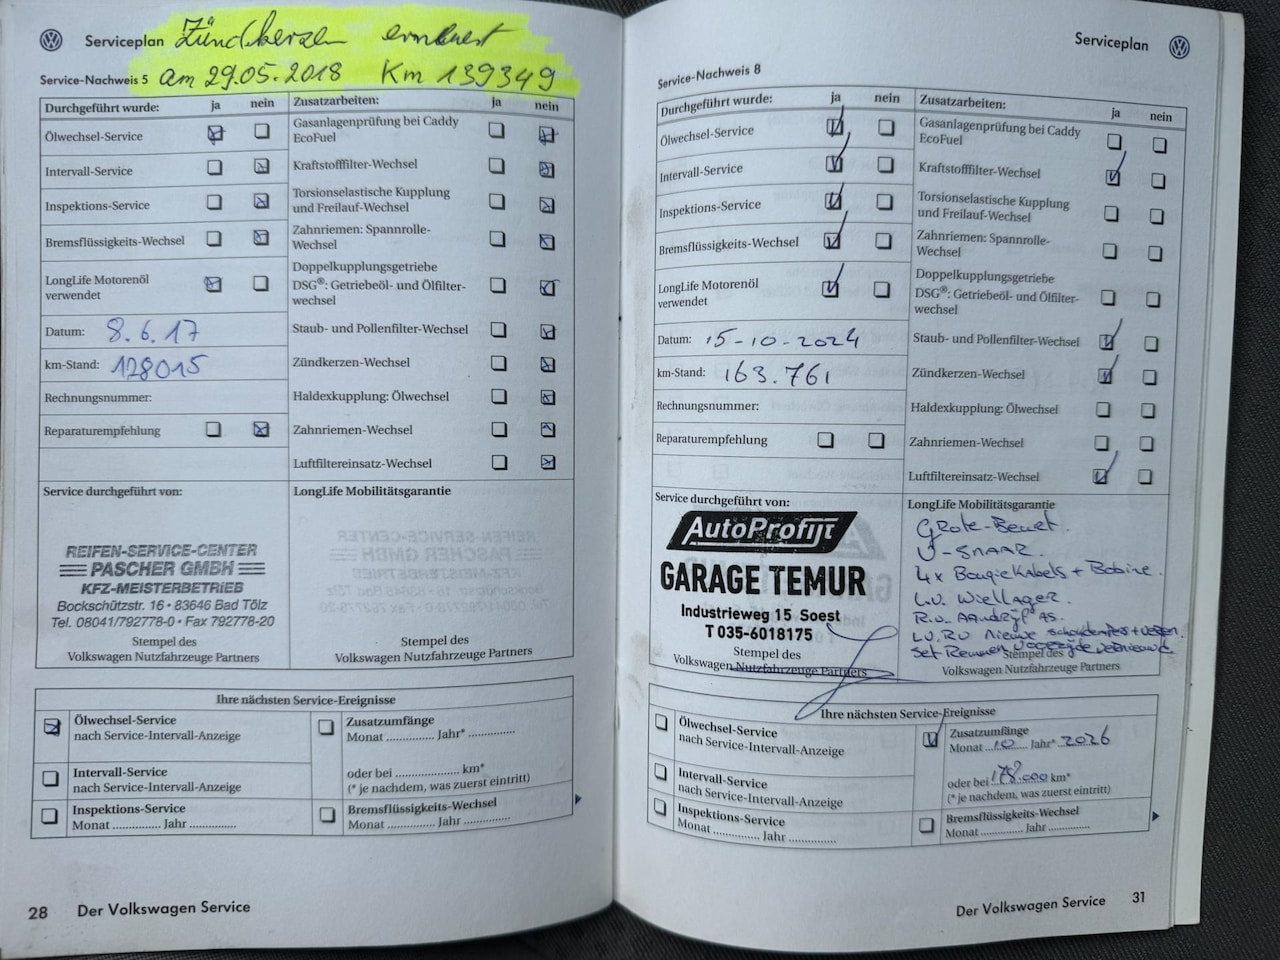 Serviceplan Zündkerzen erneuert
Service-Nachweis 5 am 29.05.2018 Km 139349
Durchgeführt wurde: ja nein
Ölwechsel-Service
Intervall-Service
Inspektions-Service
Bremsflüssigkeits-Wechsel
LongLife Motorenöl
verwendet
Datum: 8.6.17
km-Stand: 128015
Rechnungsnummer:
Reparaturempfehlung
Zusatzarbeiten: ja nein
Gasanlagenprüfung bei Caddy
EcoFuel
Kraftstofffilter-Wechsel
Torsionselastische Kupplung
und Freilauf-Wechsel
Zahnriemen: Spannrolle-
Wechsel
Doppelkupplungsgetriebe
DSG®: Getriebeöl- und Ölfilter-
wechsel
Staub- und Pollenfilter-Wechsel
Zündkerzen-Wechsel
Haldexkupplung: Ölwechsel
Zahnriemen-Wechsel
Luftfiltereinsatz-Wechsel
Service durchgeführt von:
REIFEN-SERVICE-CENTER
PASCHER GMBH
KFZ-MEISTERBETRIEB
Bockschützstr. 16 • 83646 Bad Tölz
Tel. 08041/792778-0 • Fax 792778-20
Stempel des
Volkswagen Nutzfahrzeuge Partners
LongLife Mobilitätsgarantie
Stempel des
Volkswagen Nutzfahrzeuge Partners
Ihre nächsten Service-Ereignisse
Ölwechsel-Service
nach Service-Intervall-Anzeige
Intervall-Service
nach Service-Intervall-Anzeige
Inspektions-Service
Monat .............. Jahr ..............
Zusatzumfänge
Monat .............. Jahr* ..............
oder bei .................... km*
(* je nachdem, was zuerst eintritt)
Bremsflüssigkeits-Wechsel
Monat .............. Jahr ..............
28 Der Volkswagen Service
Serviceplan
Service-Nachweis 8
Durchgeführt wurde: ja nein
Ölwechsel-Service
Intervall-Service
Inspektions-Service
Bremsflüssigkeits-Wechsel
LongLife Motorenöl
verwendet
Datum: 15-10-2024
km-Stand: 163.761
Rechnungsnummer:
Reparaturempfehlung
Zusatzarbeiten: ja nein
Gasanlagenprüfung bei Caddy
EcoFuel
Kraftstofffilter-Wechsel
Torsionselastische Kupplung
und Freilauf-Wechsel
Zahnriemen: Spannrolle-
Wechsel
Doppelkupplungsgetriebe
DSG®: Getriebeöl- und Ölfilter-
wechsel
Staub- und Pollenfilter-Wechsel
Zündkerzen-Wechsel
Haldexkupplung: Ölwechsel
Zahnriemen-Wechsel
Luftfiltereinsatz-Wechsel
Service durchgeführt von:
AutoProfijt
GARAGE TEMUR
Industrieweg 15 Soest
T 035-6018175
Stempel des
Volkswagen Nutzfahrzeuge Partners
LongLife Mobilitätsgarantie
Grote-Beurt.
V-SNAAR.
4x Bougiekabels + Bobine.
L.V. Wiellager.
R.V. AANdrijf AS.
L.V. R.V Nieuwe
Set Remmen
Stempel des
Volkswagen Nutzfahrzeuge Partners
Ihre nächsten Service-Ereignisse
Ölwechsel-Service
nach Service-Intervall-Anzeige
Intervall-Service
nach Service-Intervall-Anzeige
Inspektions-Service
Monat .............. Jahr ..............
Zusatzumfänge
Monat 10 Jahr* 2026
oder bei 178.000 km*
(* je nachdem, was zuerst eintritt)
Bremsflüssigkeits-Wechsel
Monat .............. Jahr ..............
Der Volkswagen Service 31